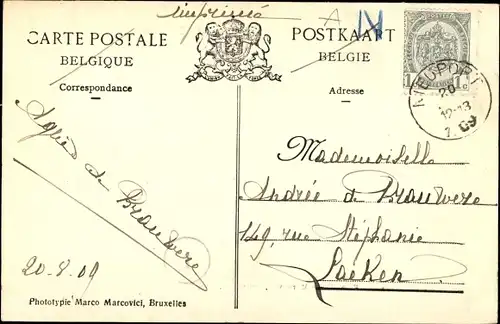 imprimé
CARTE POSTALE
BELGIQUE
Correspondance
POSTKAART
BELGIE
Adresse
NIEUPORT
12-13
09
Agnès de Brauwere
20-8-09
Mademoiselle
Andrée de Brauwere
149, rue Stéphanie
Laeken
Phototypie Marco Marcovici, Bruxelles